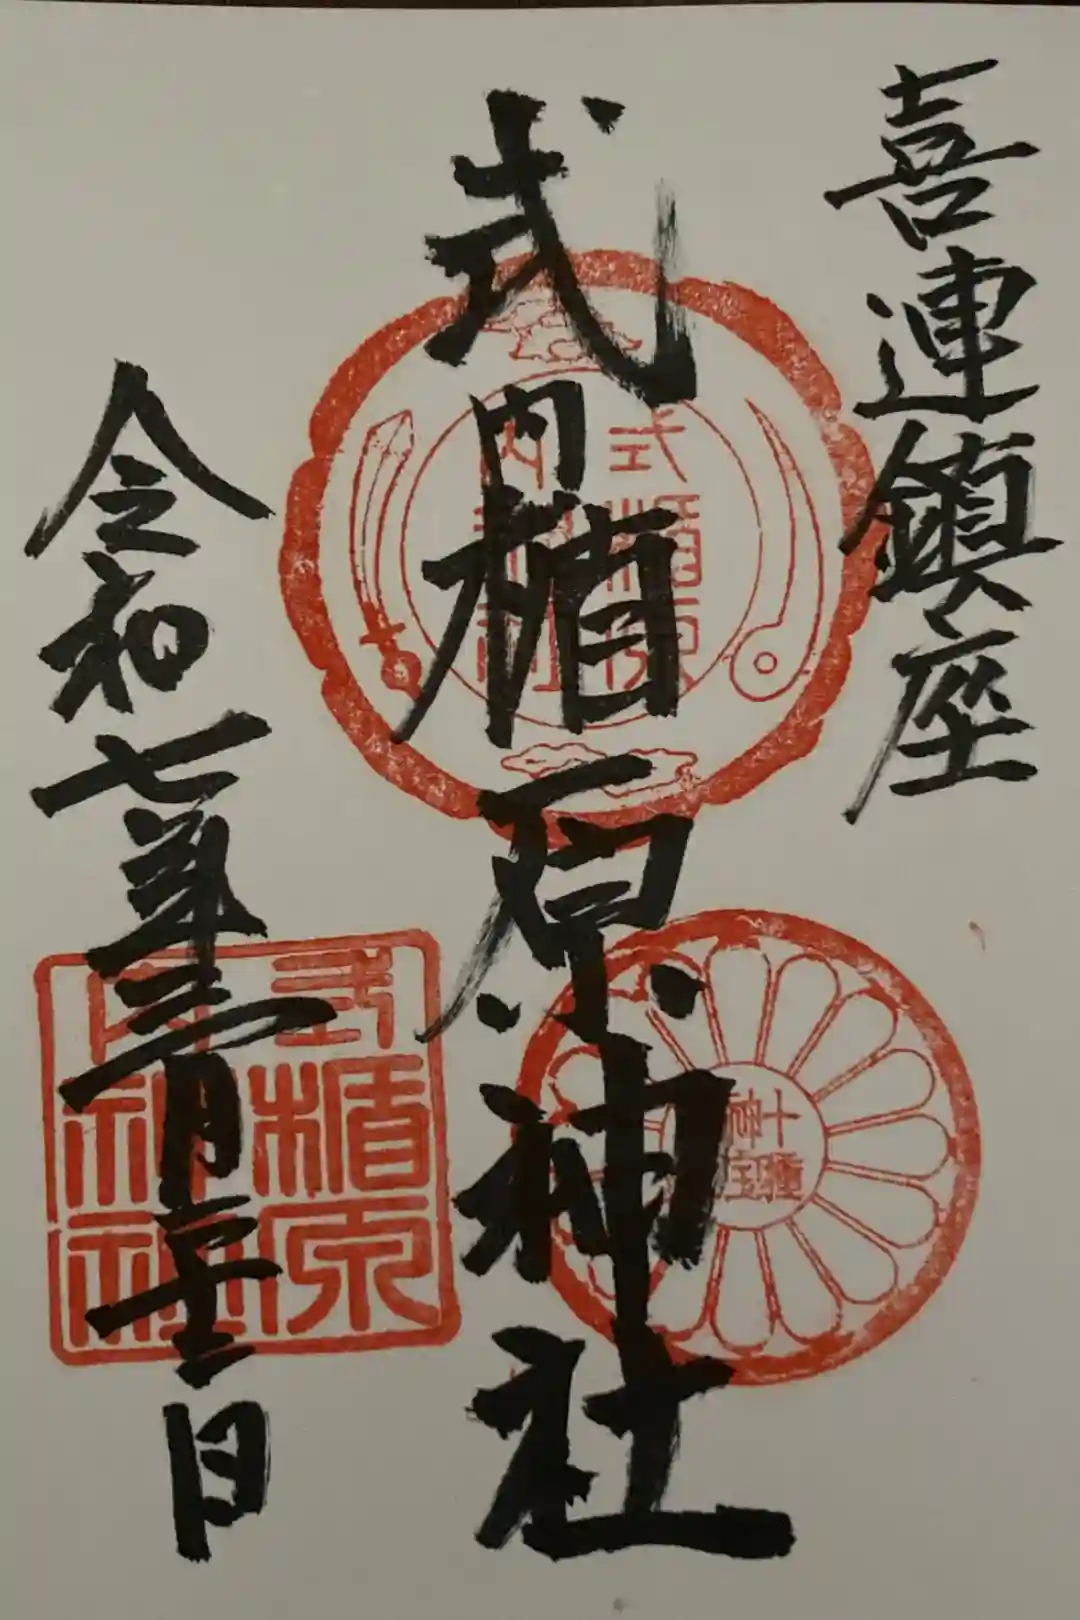 喜連鎮座
式内楯原神社
令和七年三月二十一日
式内
楯原
神社
十種
神宝
式楯原
内神社